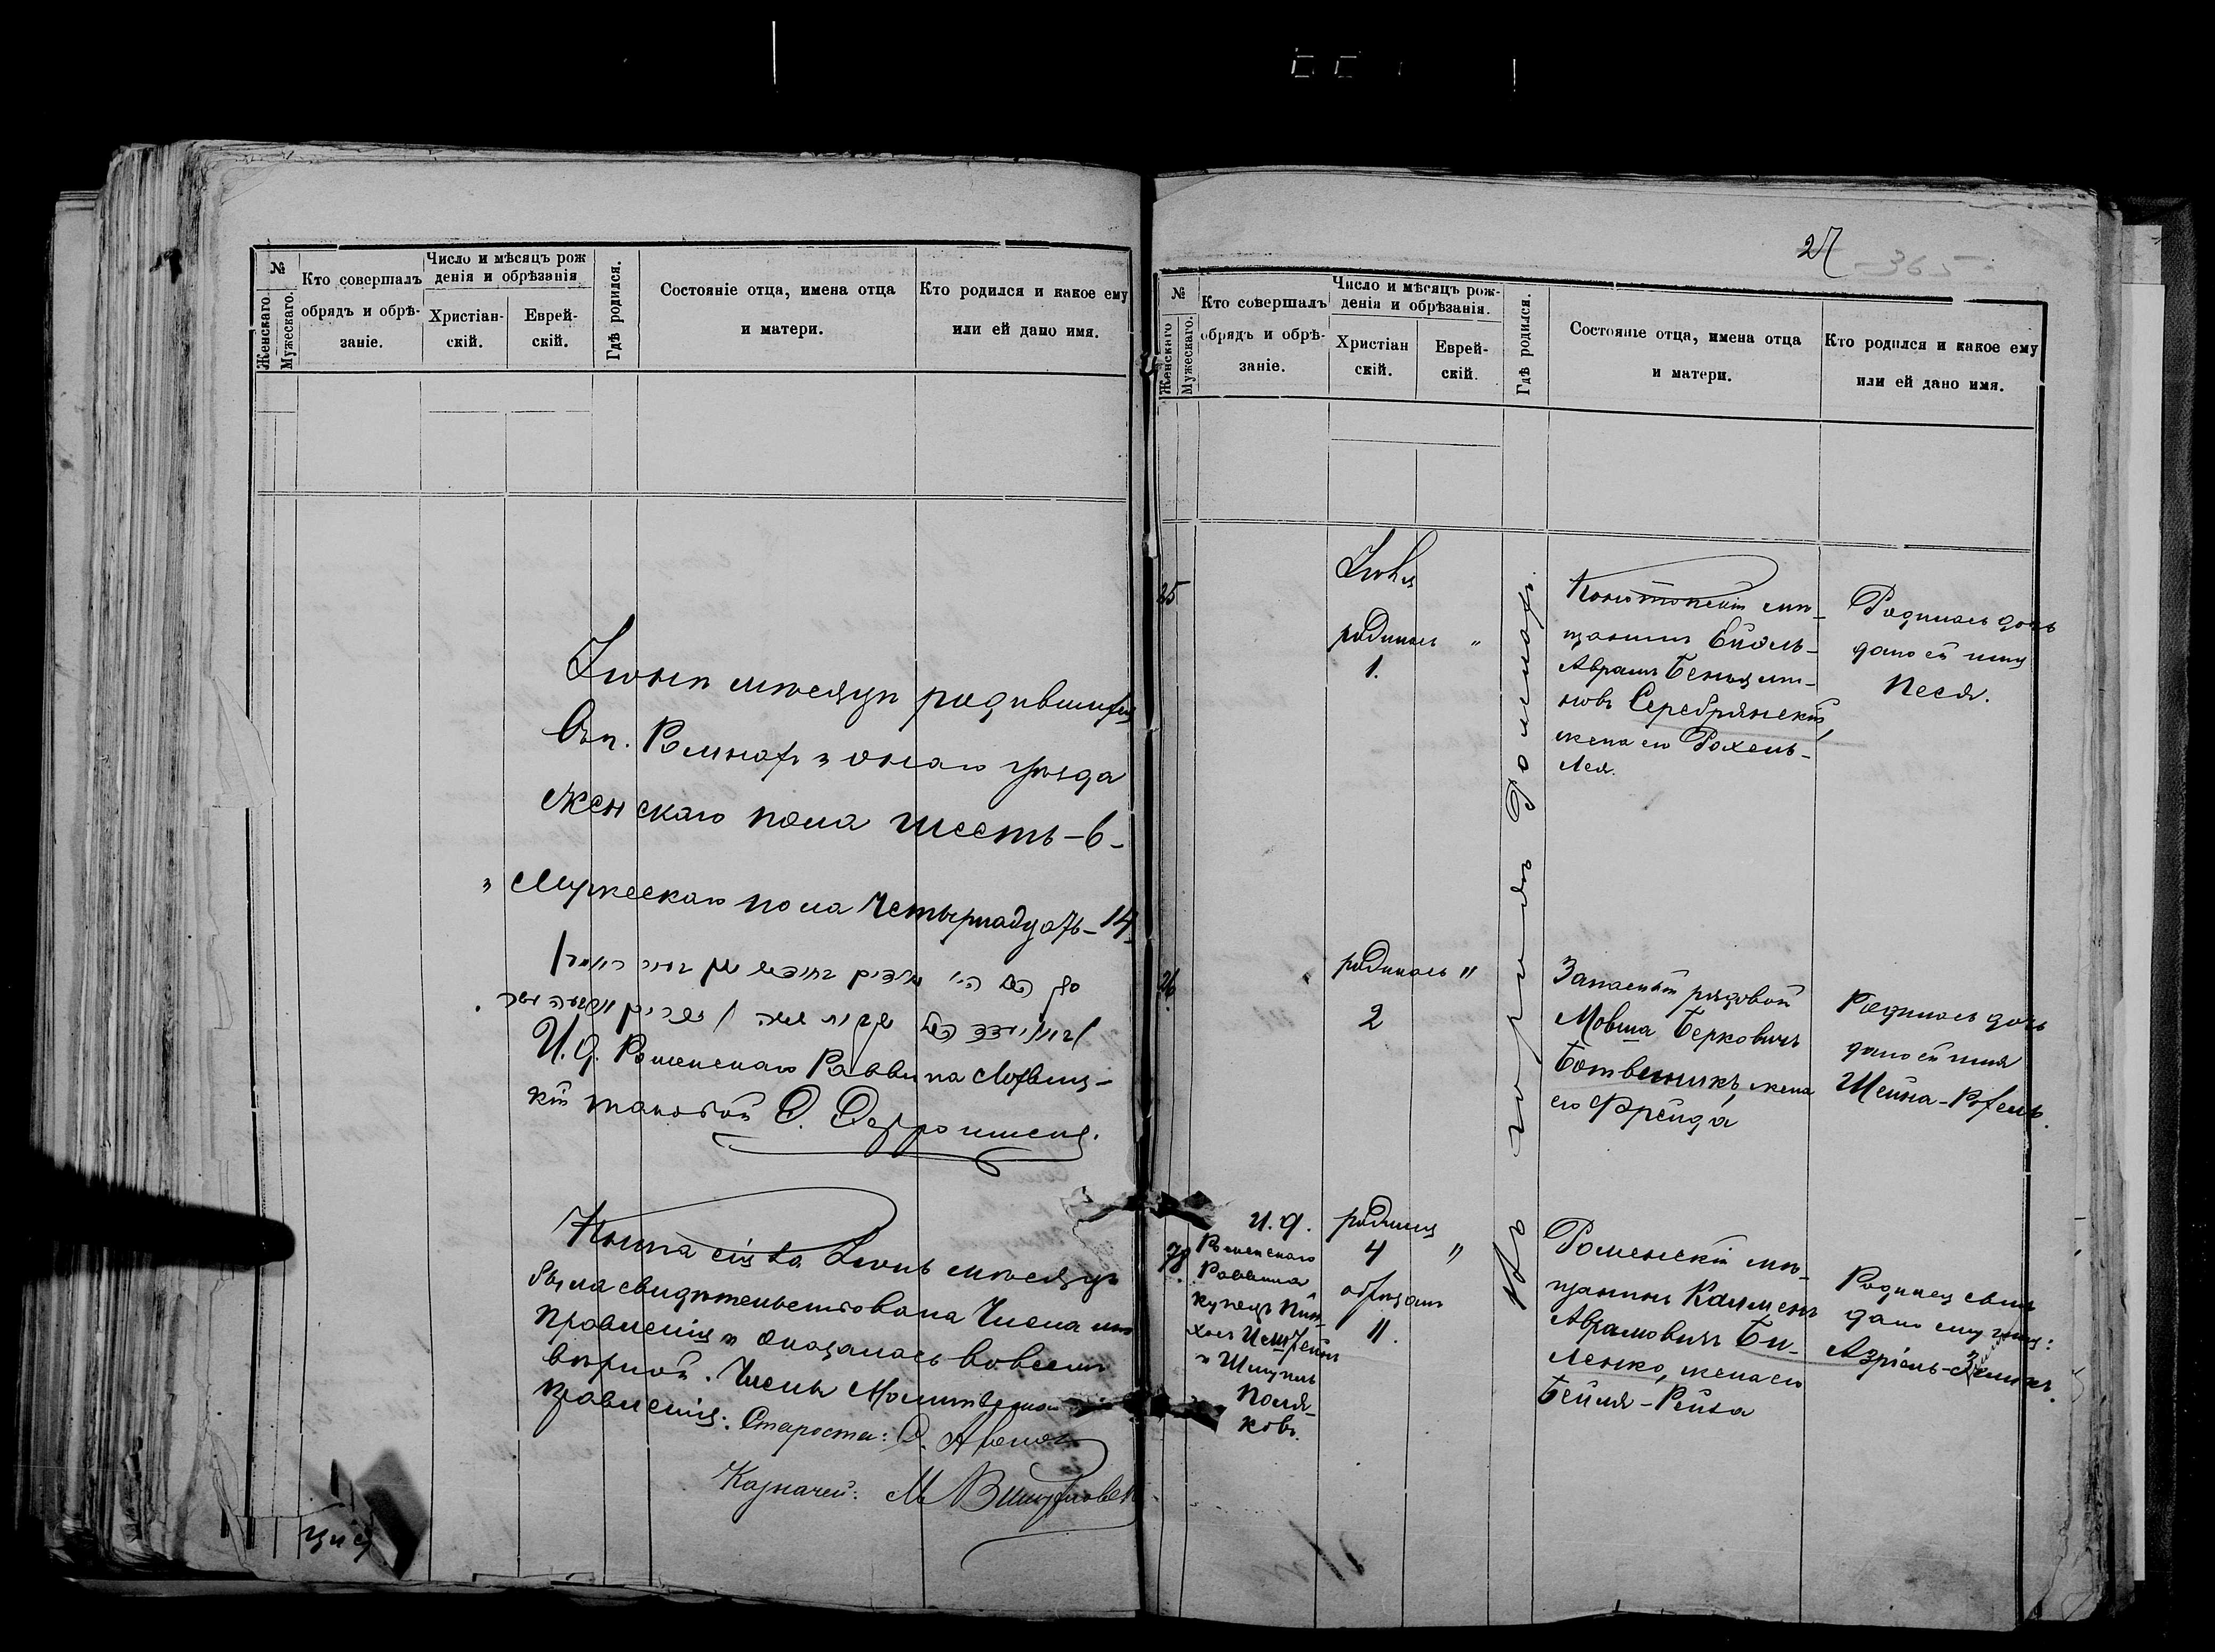 №
Женскаго.
Мужескаго.
Кто совершалъ
обрядъ и обрѣ-
заніе.
Число и мѣсяцъ рож
денія и обрѣзанія
Христіан-
скій.
Еврей-
скій.
Гдѣ родился.
Состояніе отца, имена отца
и матери.
Кто родился и какое ему
или ей дано имя.
Іюнѣ мѣсяцѣ родившихся
въ г. Ромнахъ и онаго уѣзда
женскаго пола шесть - 6 -
и Мужескаго пола четырнадцать - 14
И. д. Роменскаго Раввина Лохвиц-
кій таковой
Книга сія за Іюнь мѣсяцъ
была свидѣтельствована Члена ми
Правленія и оказалась вовсемъ
вѣрной. Члены Молитвеннаго
правленія: Староста:
Казначей: М
ція
27
365
№
Женскаго
Мужескаго.
Кто совершалъ
обрядъ и обрѣ-
заніе.
Число и мѣсяцъ рож-
денія и обрѣзанія.
Христіан
скій.
Еврей-
скій.
Гдѣ родился.
Состояніе отца, имена отца
и матери.
Кто родился и какое ему
или ей дано имя.
Въ городѣ Ромнахъ.
25
Іюля
родилась "
1.
Конотопскій мѣ-
щанинъ
Аврамъ Беньями-
новъ Серебрянскій,
жена его Рохель-
Лея.
Родилась дочь
дано ей имя
Песя.
26
родилась "
2
Запасный рядовой
Мовша Берковичъ
Ботвинникъ, жена
его Фрейда
Родилась дочь
дано ей имя
Шейна-Рохель.
78
И. д.
Роменскаго
Раввина
купецъ Пин-
хосъ
и Шмуиль
Поля-
ковъ.
родился
4 "
обрѣзанъ
11.
Роменскій мѣ-
щанинъ Калменъ
Аврамовичъ Би-
ленко, жена его
Бейля-Рейза
Родился сынъ
дано ему имя:
Азріель-Зелманъ.